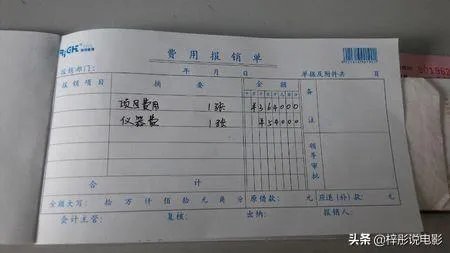 费用报销单
报销部门： 年 月 日 单据及附件共 页
报销项目 摘要 金额 备注
项目费用 1张 ¥364000
仪器费 1张 ¥54000
领导审批
合计
金额大写： 拾 万 仟 佰 拾 元 角 分 原借款： 元 应退(补)款： 元
会计主管： 复核： 出纳： 报销人：
头条 @梓彤说电影